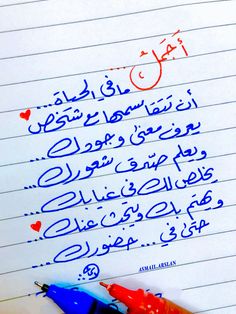 أَجمَلُ
ما في الحياة...
أن تتقاسمها مع شخص
يعرف معنى وجودك...
ويعلم صدق شعورك...
يخلص لك في غيابك...
ويهتم بك ويبحث عنك...
حتى في... حضورك...
ASMAIL ARSLAN